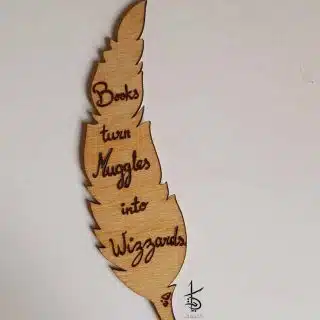 Books
turn
Muggles
into
Wizzards